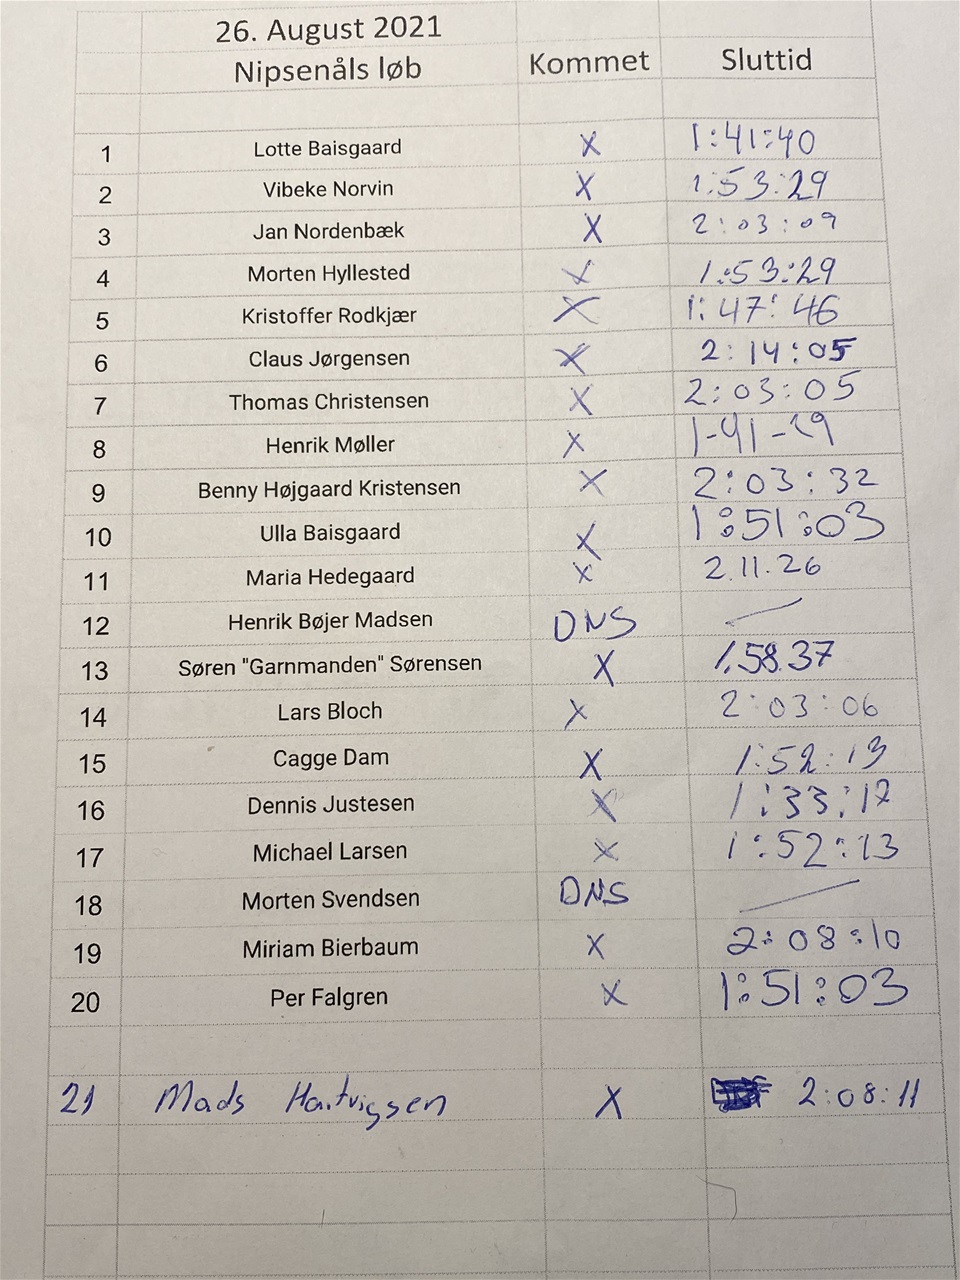 26. August 2021
Nipsenåls løb Kommet Sluttid
1 Lotte Baisgaard X 1:41:40
2 Vibeke Norvin X 1:53:29
3 Jan Nordenbæk X 2:03:09
4 Morten Hyllested X 1:53:29
5 Kristoffer Rodkjær X 1:47:46
6 Claus Jørgensen X 2:14:05
7 Thomas Christensen X 2:03:05
8 Henrik Møller X
9 Benny Højgaard Kristensen X 2:03:32
10 Ulla Baisgaard X 1:51:03
11 Maria Hedegaard X 2.11.26
12 Henrik Bøjer Madsen DNS —
13 Søren "Garnmanden" Sørensen X 1.58.37
14 Lars Bloch X 2:03:06
15 Cagge Dam X 1:52:13
16 Dennis Justesen X
17 Michael Larsen X 1:52:13
18 Morten Svendsen DNS —
19 Miriam Bierbaum X 2:08:10
20 Per Falgren X 1:51:03
21 Mads Hartvigsen X 2:08:11